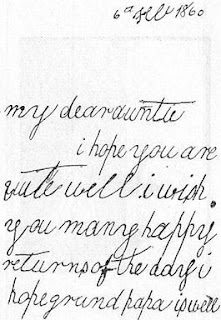 6th Feb 1860
my dear auntie
i hope you are
quite well i wish
you many happy
returns of the day i
hope grand papa is well